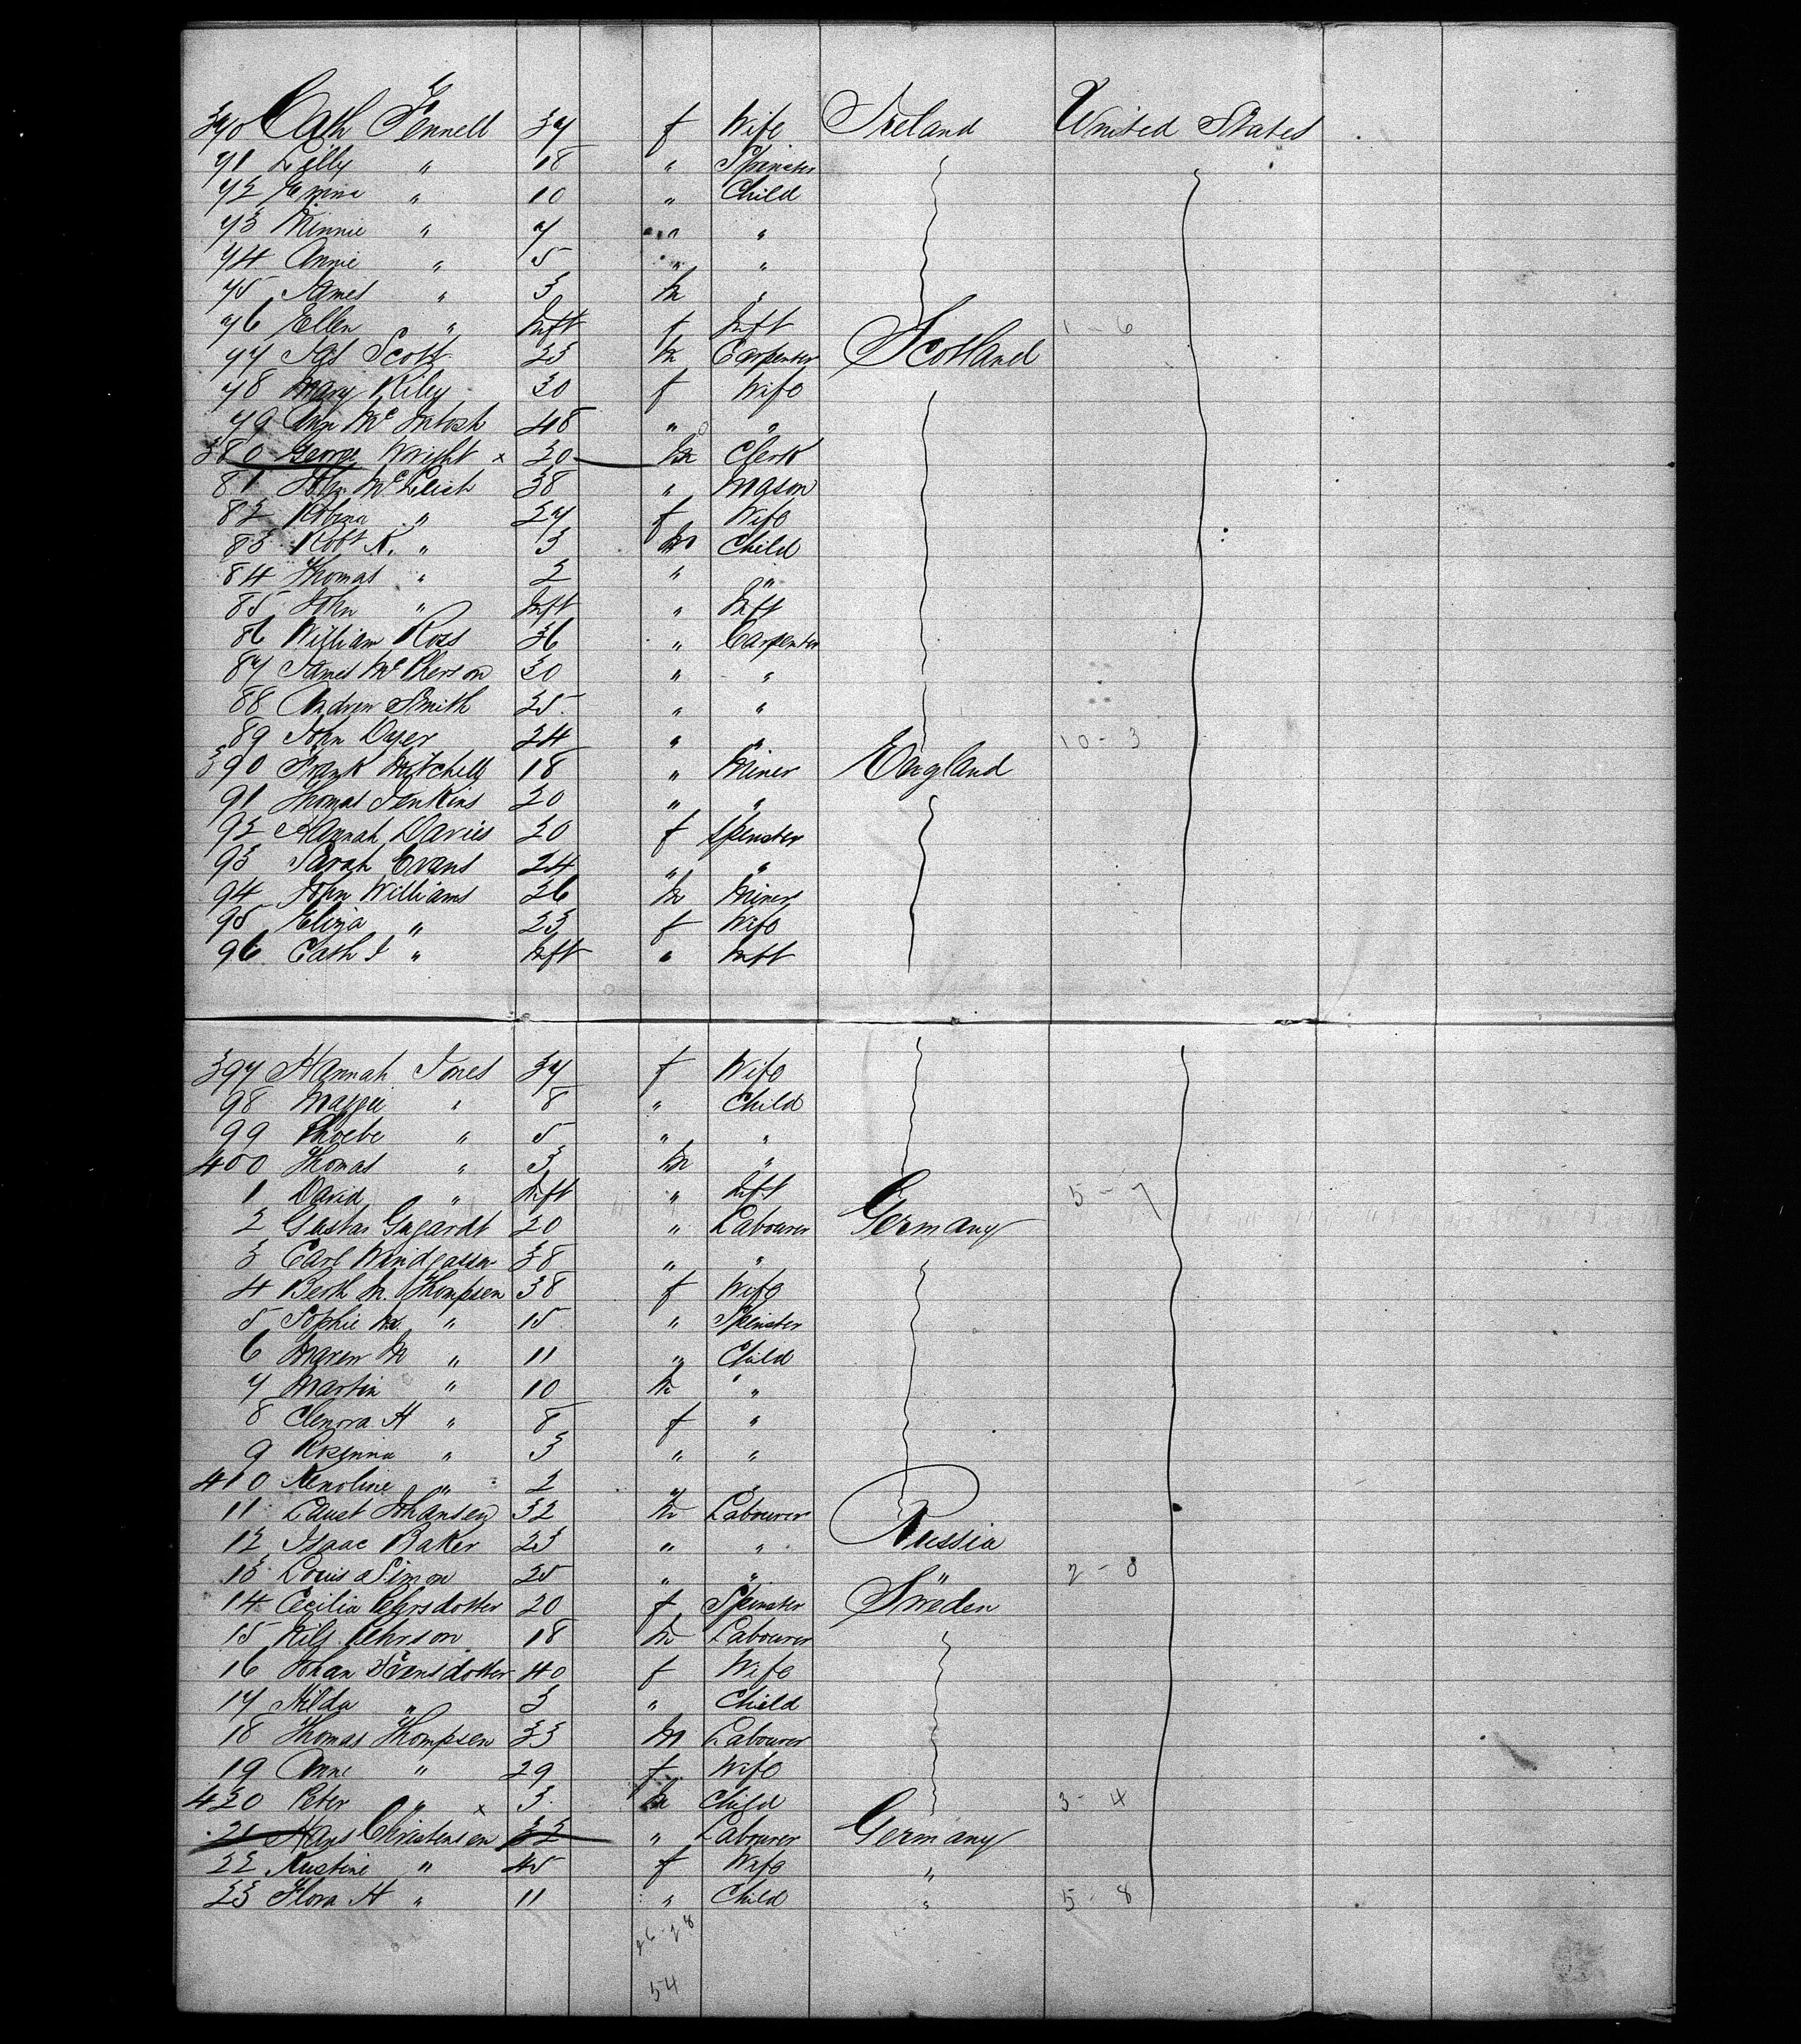 370 Cath Fennell 37 f Wife Ireland United States
71 Lilly " 18 " Spinster
72 Emma " 10 " Child
73 Minnie " 7 " "
74 Annie " 5 " "
75 James " 3 m "
76 Ellen " Inft f Inft 1-6
77 Jas Scott 23 m Carpenter Scotland
78 Mary Riley 30 f Wife
79 Ann McIntosh 48 " "
380 George Wright x 30 m Clerk
81 John McLeish 38 " Mason
82 Robina " 27 f Wife
83 Robt K. " 3 m Child
84 Thomas " 2 " "
85 John " Inft " Inft
86 William Ross 36 " Carpenter
87 James McPherson 30 " "
88 Andrew Smith 25 " "
89 John Dyer 24 " " 10-3
390 Frank Mitchell 18 " Miner England
91 Thomas Jenkins 20 " "
92 Hannah Davies 20 f Spinster
93 Sarah Evans 24 " "
94 John Williams 26 m Miner
95 Eliza " 23 f Wife
96 Cath J " Inft " Inft
397 Hannah Jones 37 f Wife
98 Maggie " 8 " Child
99 Phoebe " 5 " "
400 Thomas " 3 m "
1 David " Inft " Inft 5-7
2 Gustav 20 " Labourer Germany
3 Carl 38 " "
4 Berth M. Thompsen 38 f Wife
5 Sophie M. " 15 " Spinster
6 Maren M " 11 " Child
7 Martin " 10 m "
8 Elenora H " 8 f "
9 " 3 " "
410 " 2 " "
11 Laust Johansen 32 m Labourer
12 Isaac Baker 23 " " Russia
13 Louis Simon 25 " " 2-0
14 Cecilia Pehrsdotter 20 f Spinster Sweden
15 Nils Pehrson 18 m Labourer
16 Johan 40 f Wife
17 Hilda " 3 " Child
18 Thomas Thompsen 33 m Labourer
19 Anne " 29 f Wife
420 Peter " x 3 m Child 3-4
21 Hans Christensen 32 " Labourer Germany
22 Kustine " 45 f Wife "
23 Flora H " 11 " Child " 5-8
26-28
54